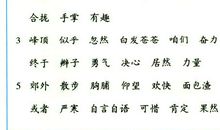 合拢 手掌 有趣
3 峰顶 似乎 忽然 白发苍苍 咱们 奋力
终于 辫子 勇气 决心 居然 力量
5 郊外 散步 胸脯 仰望 欢快 面包渣
或者 严寒 自言自语 可惜 肯定 果然